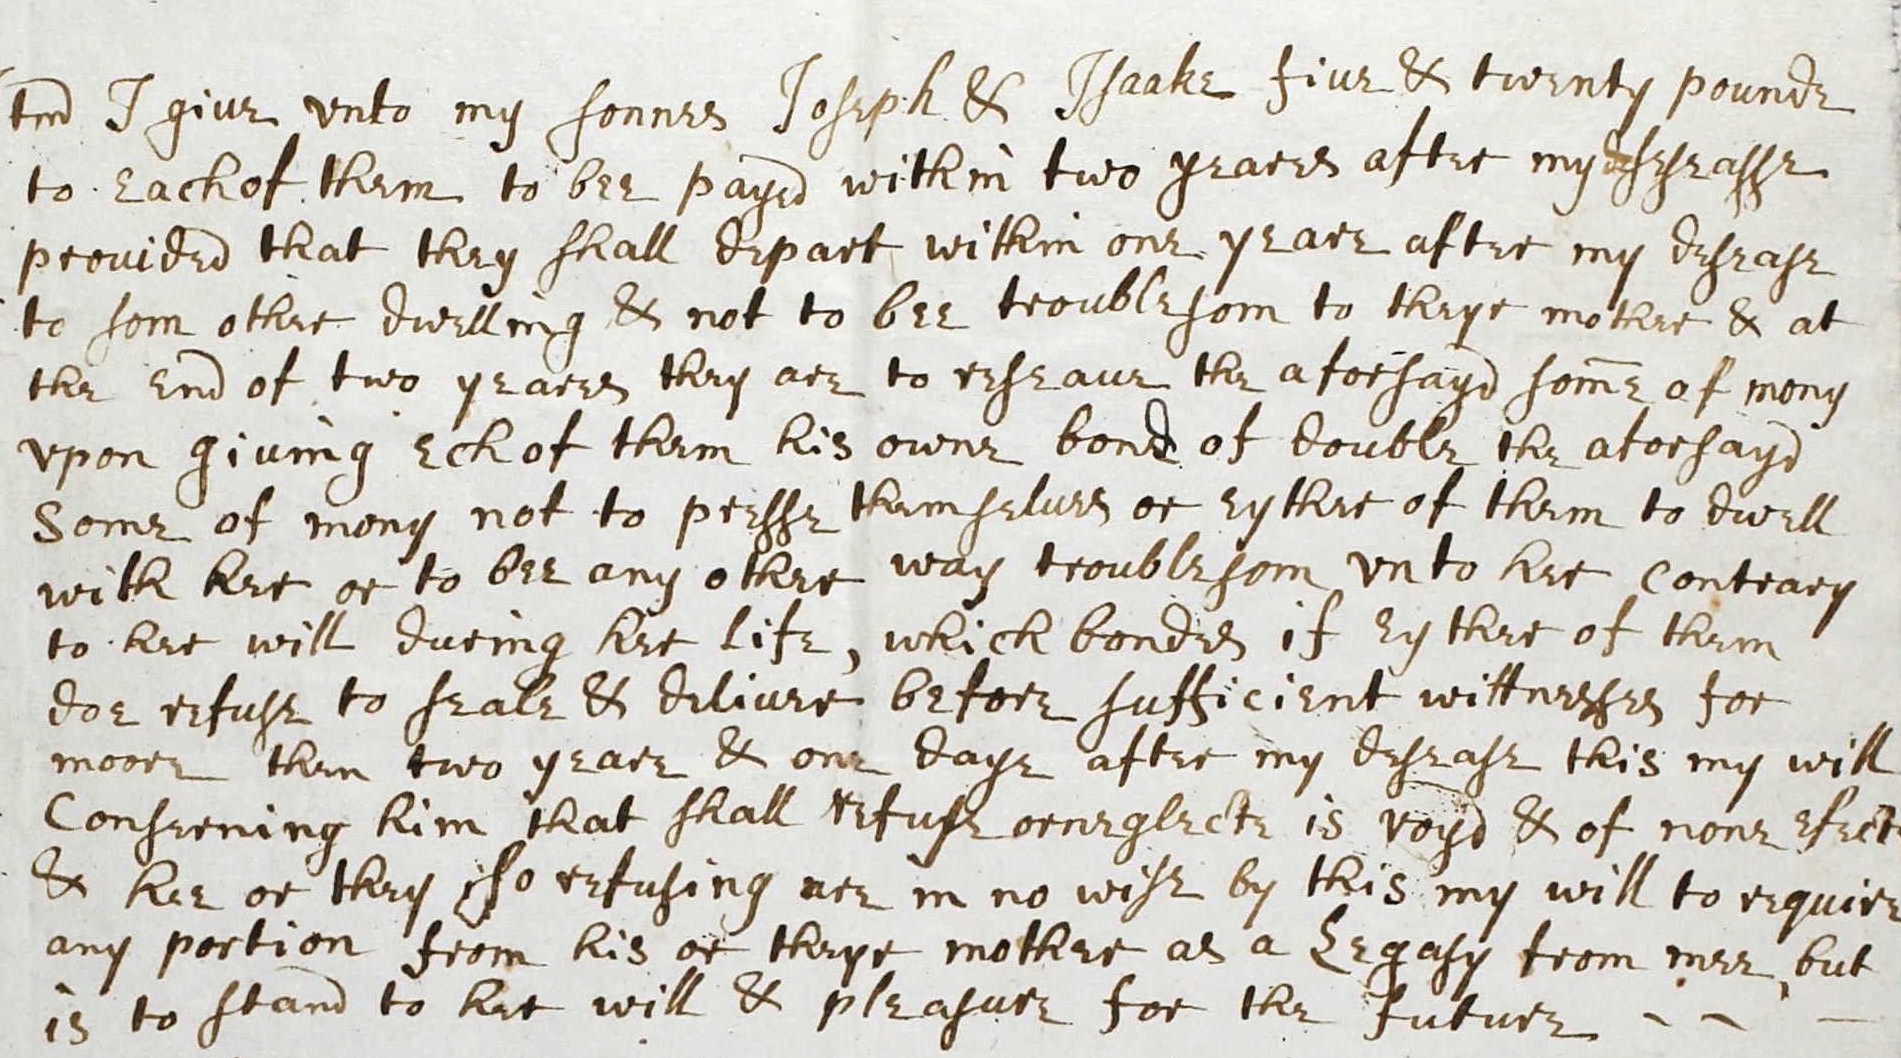 I give vnto my sonnes Joseph & Isaake five & twenty pounde
to each of them to bee payed within two yeares after my desseasse
prouided that they shall depart within one yeare after my desease
to som other dwelling & not to bee troublesom to theyr mother & at
the End of two yeares they are to reseaue the aforsayd som̄e of mony
vpon giuing ech of them his owne bond of double the aforsayd
Some of mony not to presse themselues or eyther of them to dwell
with her or to bee any other way troublesom vnto her Contrary
to her will during her life, which bondes if eyther of them
doe refuse to seale & deliuer before sufficient wittnesses for
moore then two yeare & one daye after my desease this my will
Conserning him that shall refuse or neglecte is voyd & of none efect
& hee or they so refusing are in no wise by this my will to require
any portion from his or theyr mother as a Legasy from mee, but
is to stand to her will & pleasure for the future - - -